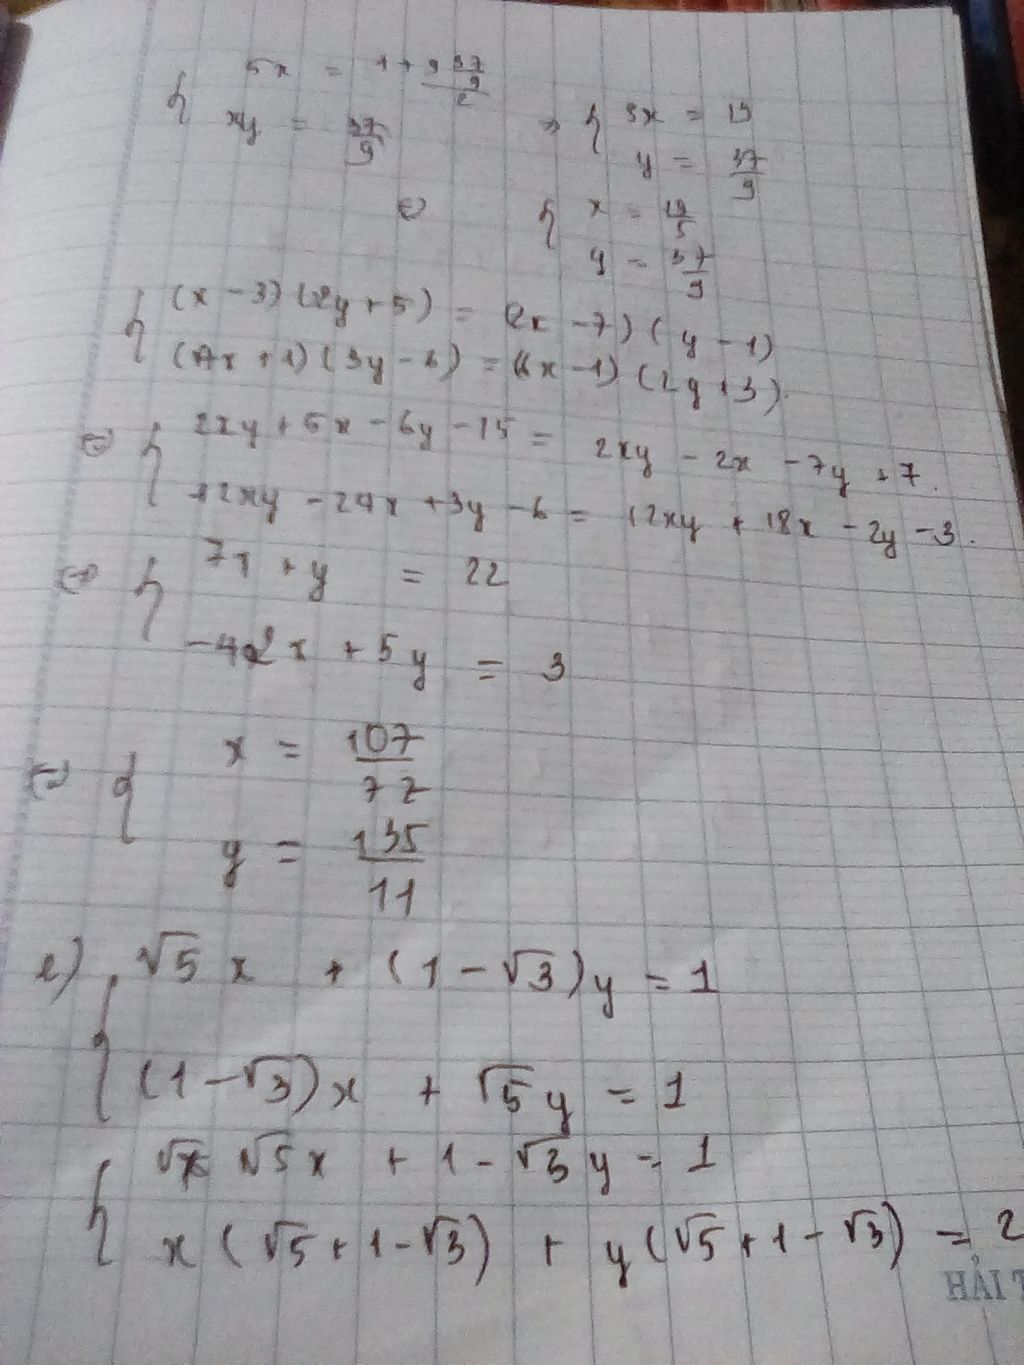 { 5x = 1 + 9 37/9 / 2
xy = 37/9 => { 5x = 19
y = 37/9
<=> { x = 19/5
y = 37/9
{ (x - 3)(2y + 5) = (2x - 7)(y - 1)
(4x + 1)(3y - 6) = (6x - 1)(2y + 3).
<=> { 2xy + 5x - 6y - 15 = 2xy - 2x - 7y + 7.
12xy - 24x + 3y - 6 = 12xy + 18x - 2y - 3.
<=> { 7x + y = 22
-42x + 5y = 3
<=> { x = 107/77
y = 135/11
e) { √5 x + (1 - √3)y = 1
(1 - √3)x + √5y = 1
{ √5x + 1 - √3y = 1
x(√5 + 1 - √3) + y(√5 + 1 - √3) = 2
HẢI T